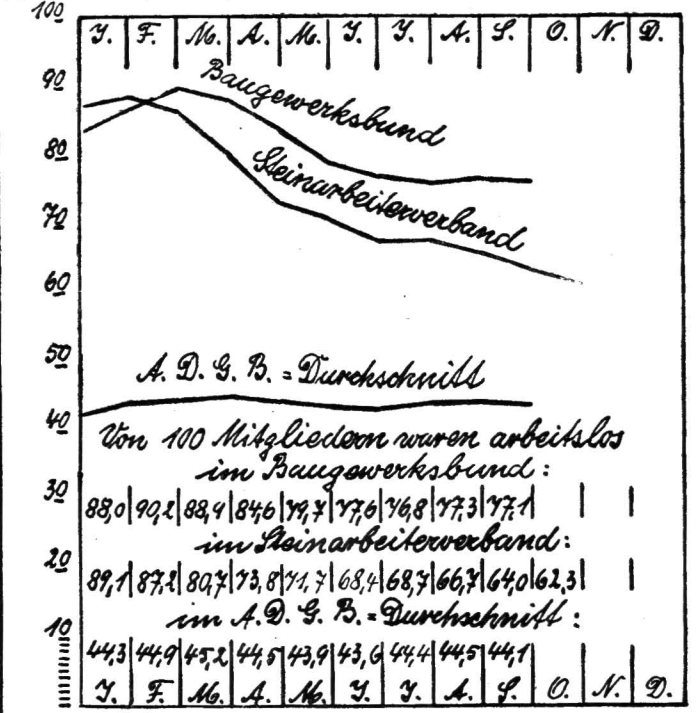 100
J. F. M. A. M. J. J. A. S. O. N. D.
90
Baugewerksbund
80
Steinarbeiterverband
70
60
50
A. D. G. B. = Durchschnitt
40
Von 100 Mitgliedern waren arbeitslos
im Baugewerksbund:
30
88,0 90,2 88,9 84,6 79,7 77,6 76,8 77,3 77,1
im Steinarbeiterverband:
20
89,1 87,2 80,7 73,8 71,7 68,4 68,7 66,7 64,0 62,3
im A. D. G. B. = Durchschnitt:
10
44,3 44,9 45,2 44,5 43,9 43,6 44,4 44,5 44,1
J. F. M. A. M. J. J. A. S. O. N. D.